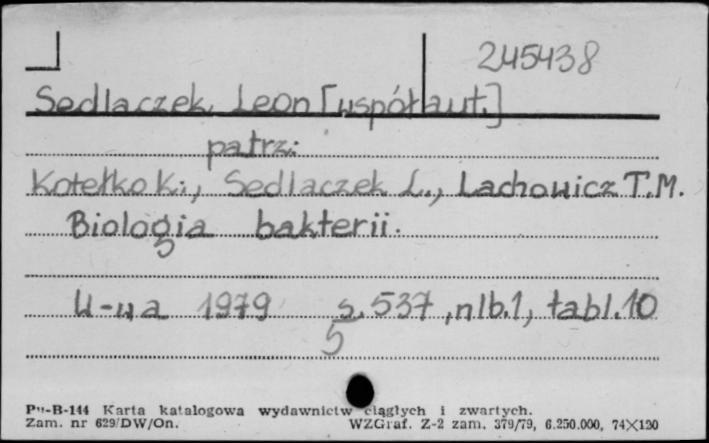 245438
Sedlaczek Leon [współaut.]
patrz:
Kotełko K., Sedlaczek L., Lachowicz T.M.
Biologia bakterii.
W-wa 1979 s. 537, nlb. 1, tabl. 10
5
Pu-B-144 Karta katalogowa wydawnictw ciągłych i zwartych.
Zam. nr 629/DW/On. WZGraf. Z-2 zam. 379/79, 6.250.000, 74×120